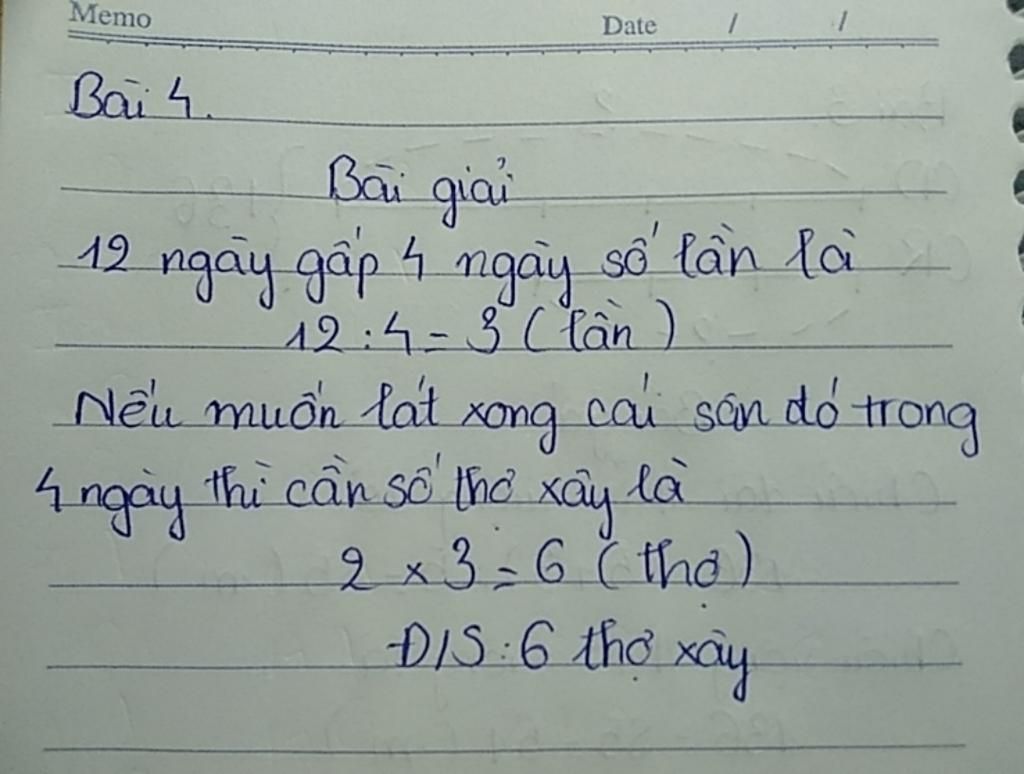 Memo Date / /
Bài 4.
Bài giải
12 ngày gấp 4 ngày số lần là
12 : 4 = 3 ( lần )
Nếu muốn lát xong cái sân đó trong
4 ngày thì cần số thợ xây là
2 × 3 = 6 ( thợ )
Đ/S : 6 thợ xây